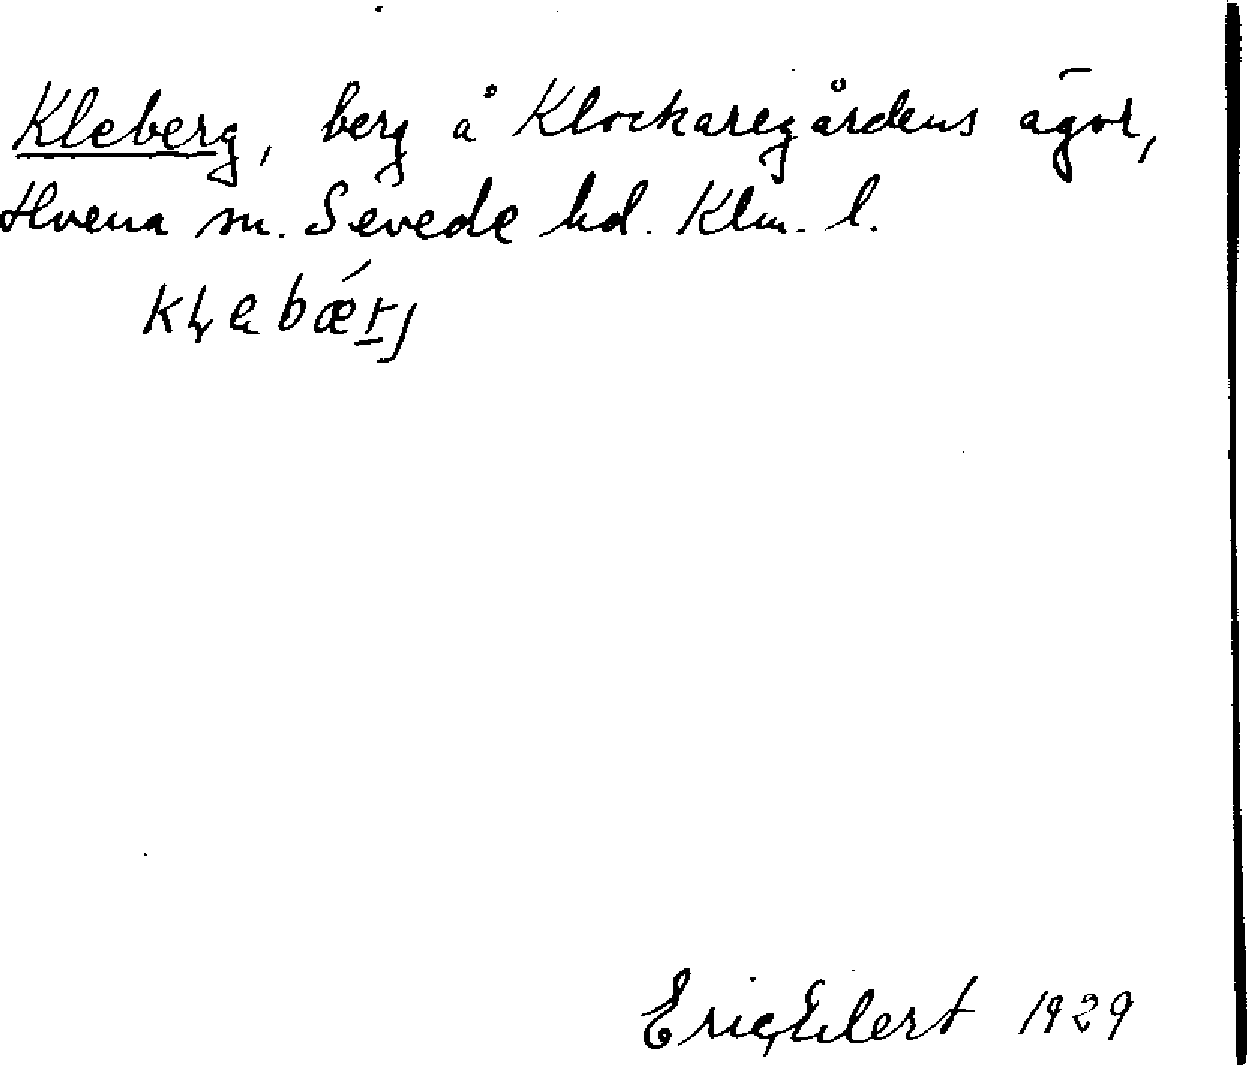 Kleberg, berg å Klockaregårdens ägor,
Hvena sn. Sevede hd. Klm. l.
klebǽrj
Eric Eilert 1929